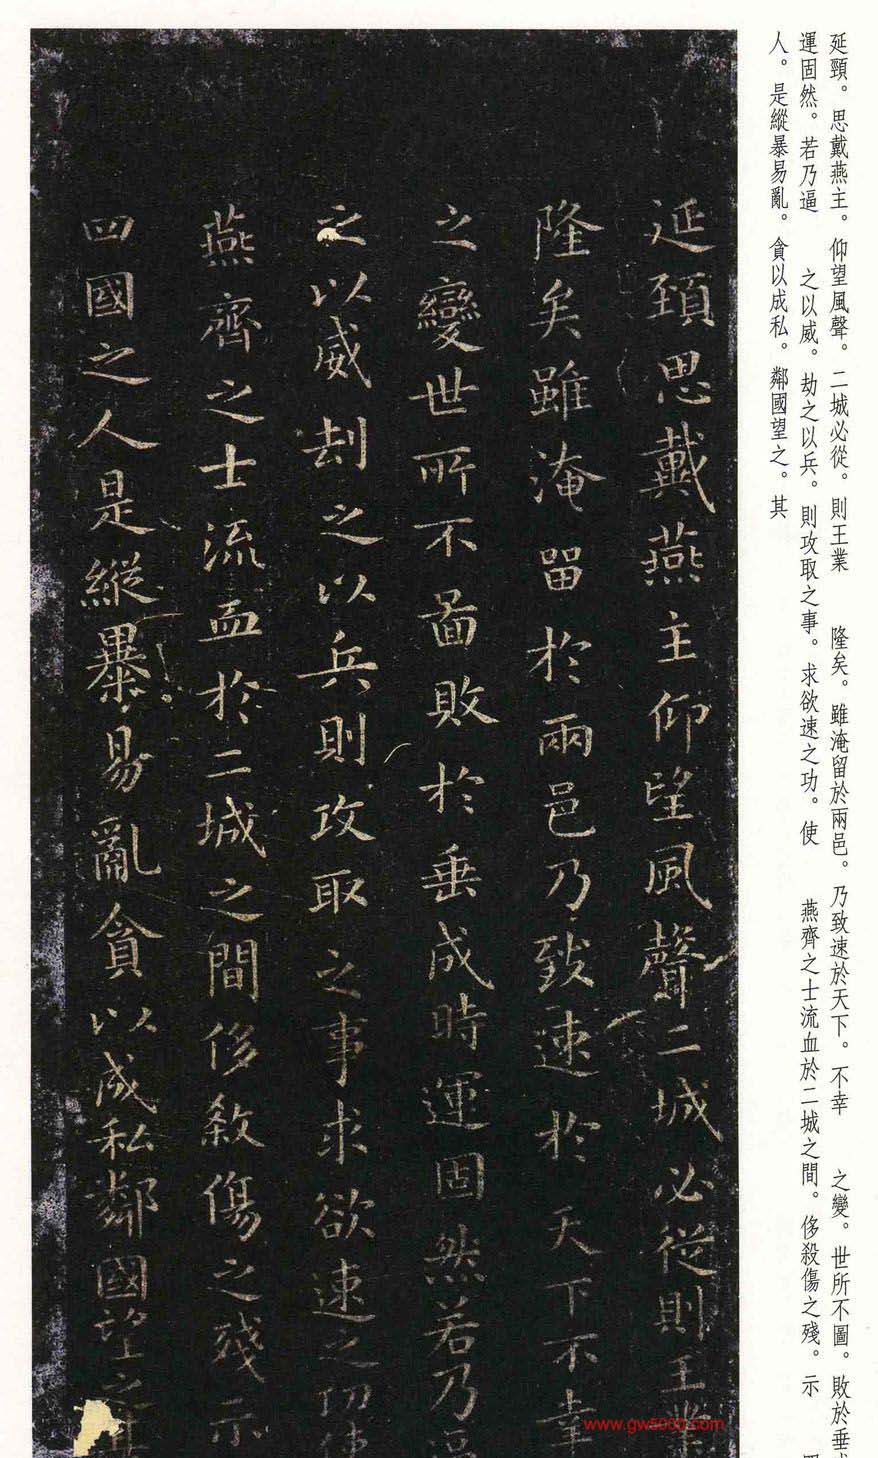 延頸。思戴燕主。仰望風聲。二城必從。則王業 隆矣。雖淹留於兩邑。乃致速於天下。不幸 之變。世所不圖。敗於垂
運固然。若乃逼 之以威。劫之以兵。則攻取之事。求欲速之功。使 燕齊之士流血於二城之間。侈殺傷之殘。示
人。是縱暴易亂。貪以成私。鄰國望之。其
延頸思戴燕主仰望風聲二城必從則王業
隆矣雖淹留於兩邑乃致速於天下不幸
之變世所不圖敗於垂成時運固然若乃逼
之以威劫之以兵則攻取之事求欲速之功使
燕齊之士流血於二城之間侈殺傷之殘示
四國之人是縱暴易亂貪以成私鄰國望之其
www.gw5000.com